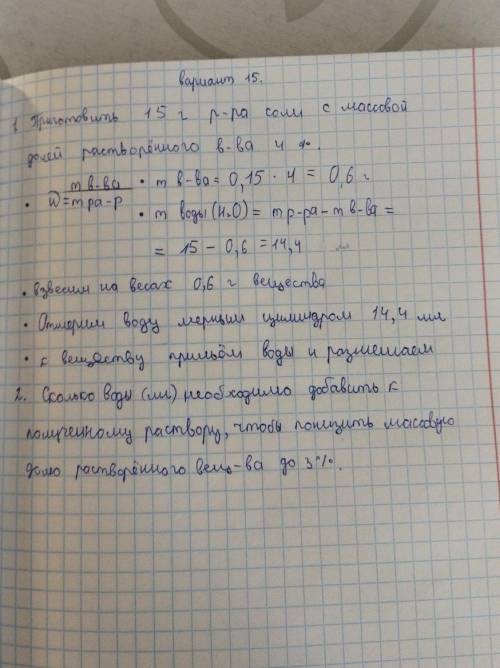 вариант 15.
1. Приготовить 15 г р-ра соли с массовой
долей растворённого в-ва 4 %.
• W = m в-ва / m ра-р • m в-ва = 0,15 · 4 = 0,6 г
• m воды (H₂O) = m р-ра - m в-ва =
= 15 - 0,6 = 14,4
• взвесим на весах 0,6 г вещества
• Отмерим воду мерным цилиндром 14,4 мл
• к веществу прильём воды и размешаем
2. Сколько воды (мл) необходимо добавить к
полученному раствору, чтобы понизить массовую
долю растворённого вещ-ва до 3%.